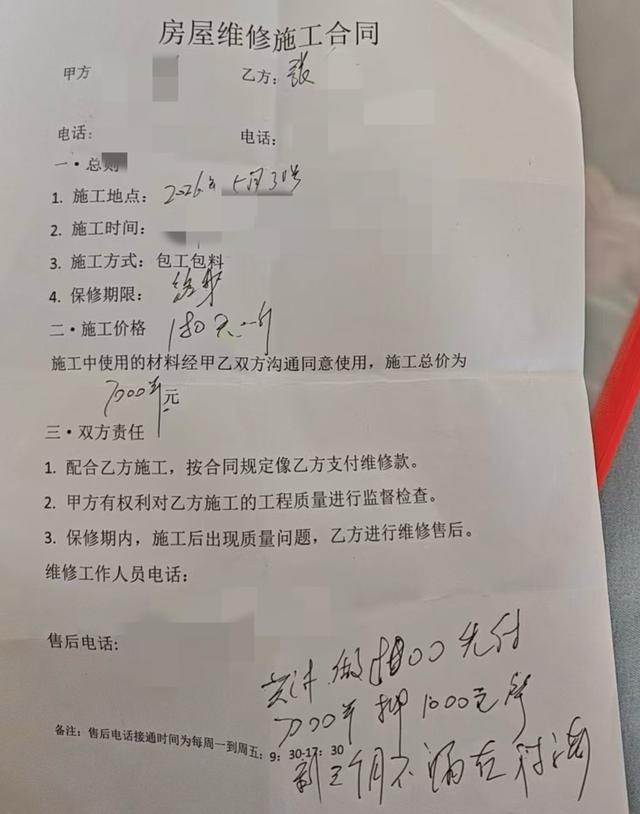 房屋维修施工合同
甲方 乙方：张
电话： 电话：
一·总则
1. 施工地点： 2026年 5月30号
2. 施工时间：
3. 施工方式：包工包料
4. 保修期限：
二·施工价格 180元一个
施工中使用的材料经甲乙双方沟通同意使用，施工总价为
7000 元
三·双方责任
1. 配合乙方施工，按合同规定像乙方支付维修款。
2. 甲方有权利对乙方施工的工程质量进行监督检查。
3. 保修期内，施工后出现质量问题，乙方进行维修售后。
维修工作人员电话：
售后电话：
共计 做 00 先付
7000 押 1000元
备注：售后电话接通时间为每周一到周五：9：30-17：30
三个月不漏在付清